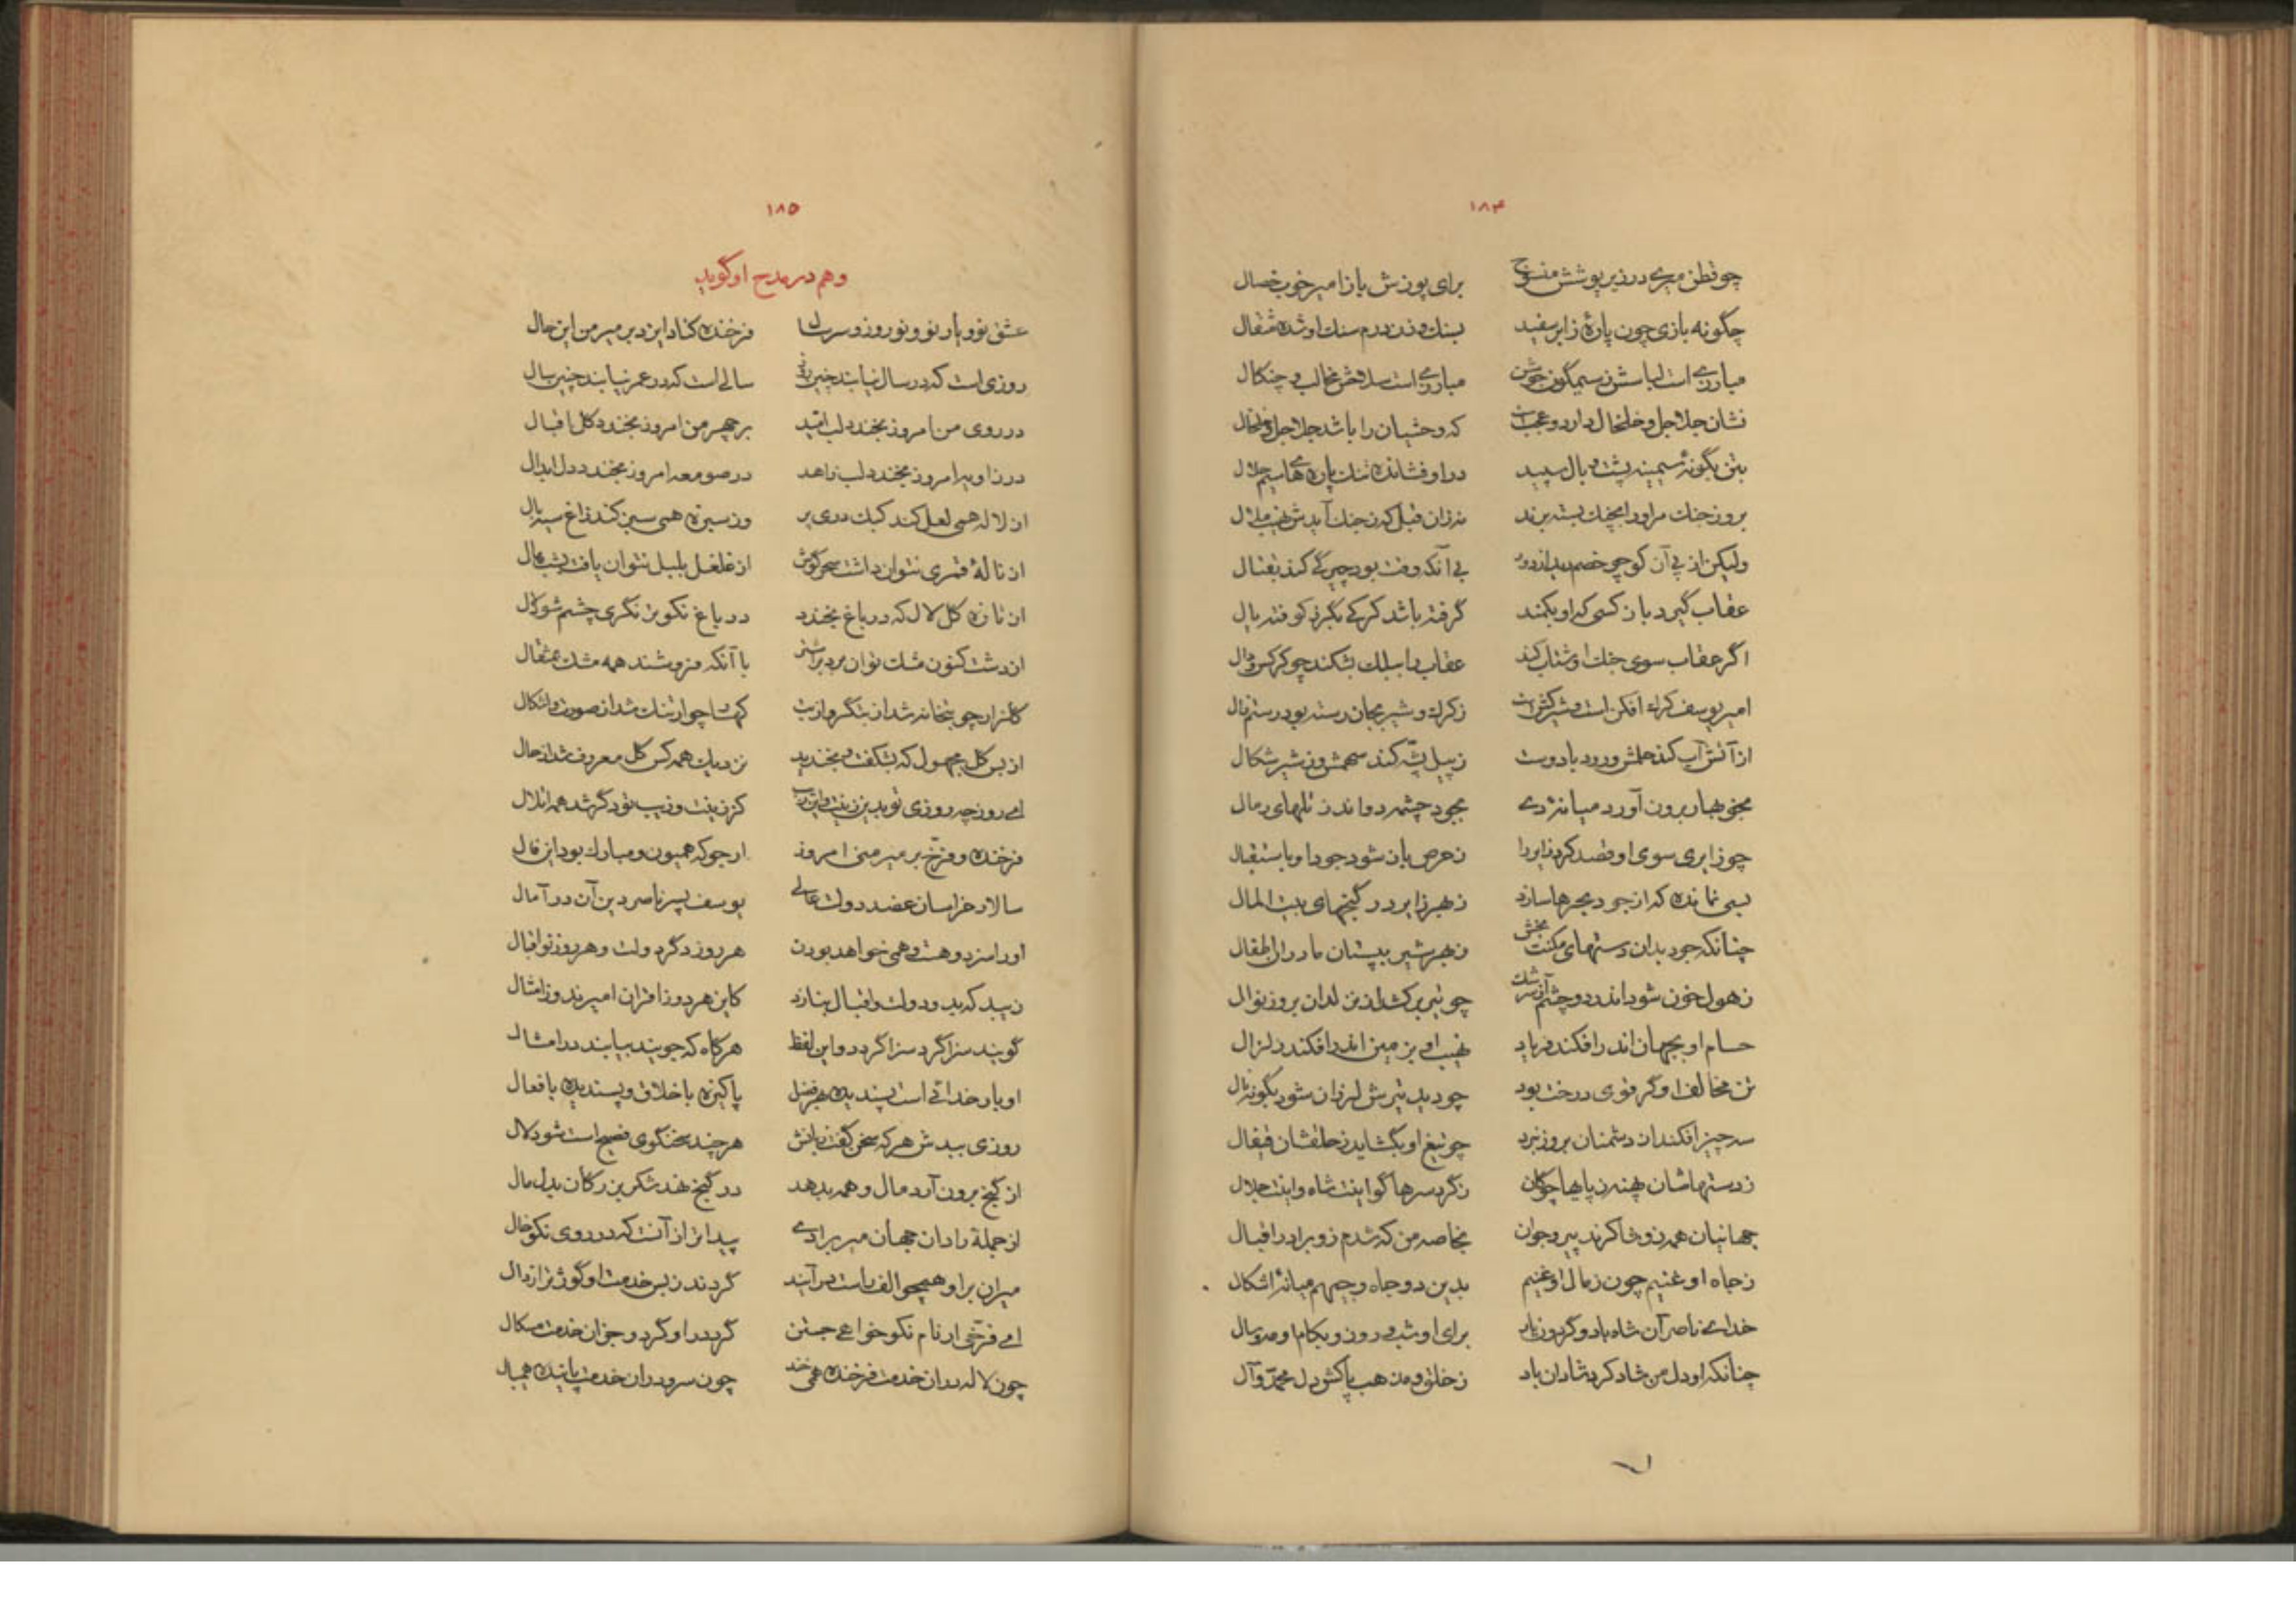 ١٨٤
چو قطن میری در زیر پوشش منسوج برای پوزش باز امیر خوب خصال
چگونه بازی چون پارهٔ ز ابر سفید بسنك ده درم سنك او شده مثقال
مبارزی است لباسش ز سیمگون جوشن مبارزی است سلاحش مخالب و چنکال
نشان جلاجل و خلخال دارد و عجبست که وحشیان را باشد جلاجل و خلخال
بتن بگونهٔ سیمینه پشت و بال سپید در او فشانده تنك پاره‌های سیم حلال
بروز جنك مر او را بخفك بسته برند نه زان قبل که ز جنك آیدش نهیب ملال
ولیکن از پی آن کو چو خصم دید از دور بی آنکه وقت بود چیرگی کند بقتال
عقاب گیرد باز کسی که او بکمند گرفته باشد کرکی بگرز کوفته یال
اگر عقاب سوی جنك او شتاب کند عقاب را بسلك بشکند چو کرکس و دال
امیر یوسف کرك افکن است و شیر کش است ز کرك و شیر بجان رسته بود رستم زال
از آتش آب کند حلمش و رود با دوست ز پیل پشه کند سهمش و ز شیر شکال
بخوی بهار برون آورد میانهٔ دی بجود چشمه دواند ز تلهای رمال
چو زایری سوی او قصد کرد زایر را ز حرص باز شود جود او باستقبال
بسی نمانده که از جود بحرها سازد ز بهر زایر در گنجهای بیت المال
چنانکه جود بدان دستهای مکنت بخش ز بهر شیر بپستان مادران اطفال
ز هول خون شود اندر دو چشم آز سرشك چو تیر برکشد از بن لدان بروز نوال
حسام او بجهان اندر افکند فریاد نهیب او بزمین اندر افکند زلزال
تن مخالف او گر قوی درخت بود چو دید تیرش لرزان شود بگونه نال
سه چیز افکند از دشمنان بروز نبرد چو تیغ او بگشاید ز حلقشان قیفال
ز دستهاشان پهنه ز پایها چوکان ز گرد سرها گو اینت شاه و اینت جلال
جهانیان همه زو شاکرند پیر و جوان بخاصه من که شدم زو برادر اقبال
ز جاه او غنیم چون ز مال او غنیم بدین دو جاه و جیهم میانهٔ اشکال
خدای ناصر آن شاه باد و گردون یار برای او شب و روز و بکام او مه و سال
چنانکه او دل من شاد کرد شادان باد ز خلق و مذهب پاکش دل محمّد و آل
١٨٥
وهم در مدح او گوید
عشق نو و یار نو و نوروز و سر سال فرخنده کناد ایزد بر میر من این حال
روزی است که در سال نیابند چنین روز سالی است که در عمر نیابند چنین سال
در روی من امروز بخندد لب امّید بر چهر من امروز بخندد کل اقبال
در زاویه امروز بخندد لب زاهد در صومعه امروز بخندد دل ابدال
از لاله همی لعل کند کبك دری پر وز سبزه همی سبز کند زاغ سیه بال
از نالهٔ قمری نتوان داشت سحر گوش از غلغل بلبل نتوان یافت بشب هال
از تازه کل لاله که در باغ بخندد در باغ نکوتر نگری چشم شود آل
از دشت کنون مشك توان برد بر اشتر با آنکه فروشند همه مشك بمثقال
کلزار چو بتخانه شد از بتگر و از بت کهسا چو ارتنك شد از صورت و اشکال
از بس کل مجهول که بشکفت و بخندید نزدیك همه کس کل معروف شد از حال
ای روز چه روزی تو بدین زینت و این زیب کز زینت و زیب تو دگر شد همه اتلال
فرخنده و فرّخ بر میر منی امروز ارجو که همیون و مبارك بود این فال
سالار خراسان عضد دولت عالی یوسف پسر ناصر دین آن در آمال
او را مزد و هست و همی خواهد بودن هر روز دگر دولت و هر روز نو اقبال
زیبد که بدو دولت و اقبال بنازد کاین هر دو ز اقران امیرند و ز امثال
گویند سزا گرد سزا گردد و این لفظ هرکاه که جویند بیابند در امثال
او بار خدائی است پسندیده بهر فضل پاکیزه باخلاق و پسندیده بافعال
روزی ببدش هر که سخن گفت زبانش هر چند سخنگوی فصیح است شود لال
از کنج برون آرد مال و همه بدهد در کنج نهد شکر بزرکان بدل مال
از جملهٔ رادان جهان میر برادی پیداتر از آنست که در روی نکو خال
میران بر او همچو الف راست در آیند گردند ز بس خدمت او گوژتر از دال
ای فرّخی ار نام نکو خواهی جستن گرد در او گرد و جز آن خدمت مسکال
چون لاله در آن خدمت فرخنده همی خند چون سرو در آن خدمت پاینده همی بال